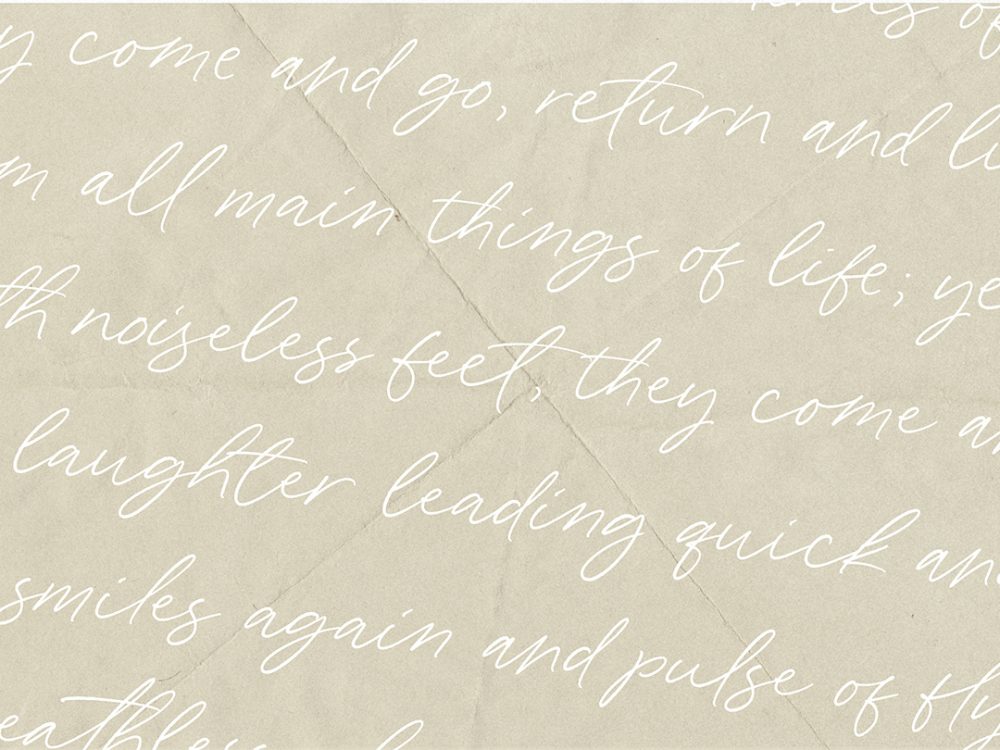 of
y come and go, return and li
m all main things of life; ye
th noiseless feet, they come a
laughter leading quick an
smiles again and pulse of fly
eathless